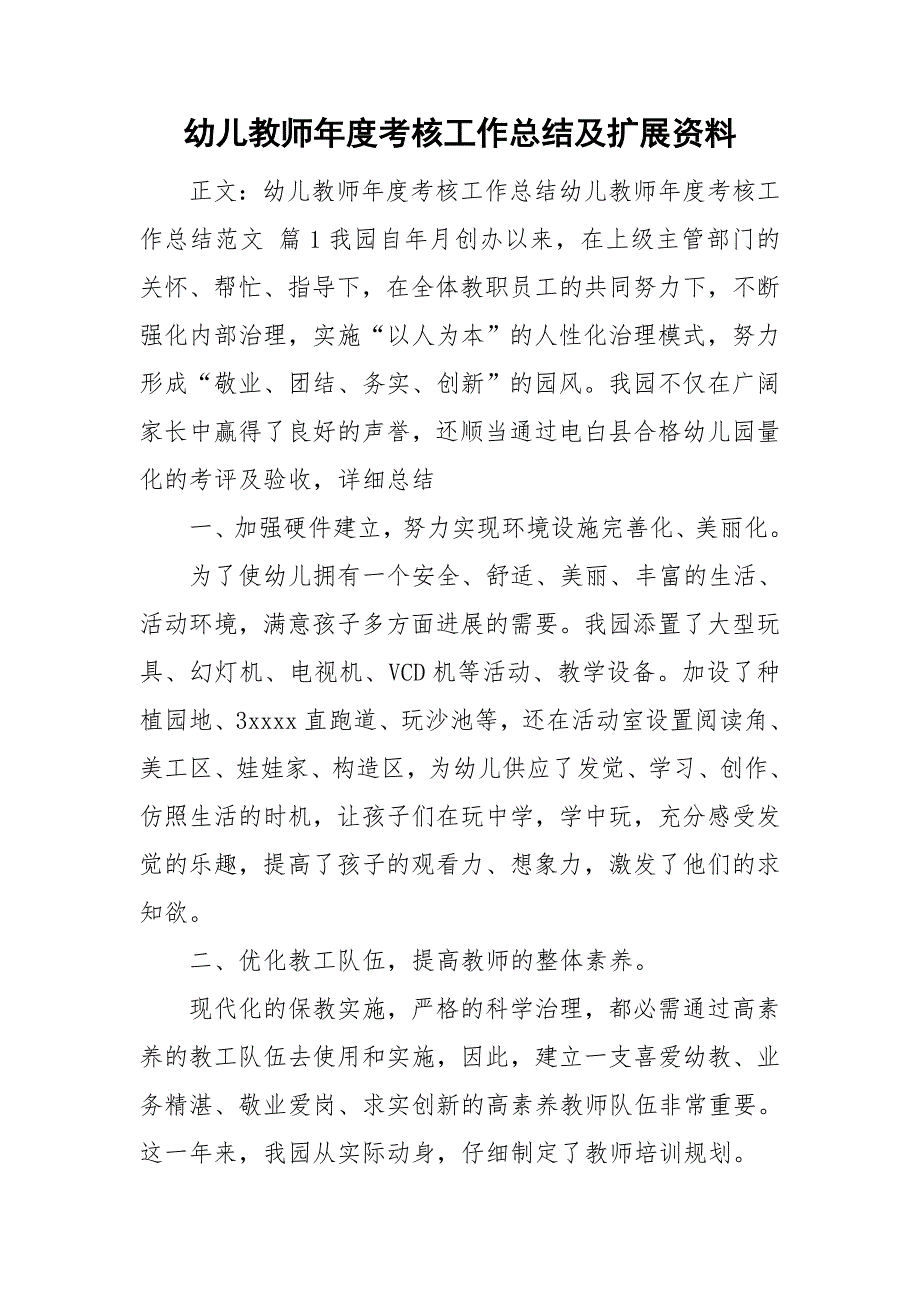 幼儿教师年度考核工作总结及扩展资料
正文：幼儿教师年度考核工作总结幼儿教师年度考核工
作总结范文 篇1我园自年月创办以来，在上级主管部门的
关怀、帮忙、指导下，在全体教职员工的共同努力下，不断
强化内部治理，实施“以人为本”的人性化治理模式，努力
形成“敬业、团结、务实、创新”的园风。我园不仅在广阔
家长中赢得了良好的声誉，还顺当通过电白县合格幼儿园量
化的考评及验收，详细总结
一、加强硬件建立，努力实现环境设施完善化、美丽化。
为了使幼儿拥有一个安全、舒适、美丽、丰富的生活、
活动环境，满意孩子多方面进展的需要。我园添置了大型玩
具、幻灯机、电视机、VCD机等活动、教学设备。加设了种
植园地、3xxxx直跑道、玩沙池等，还在活动室设置阅读角、
美工区、娃娃家、构造区，为幼儿供应了发觉、学习、创作、
仿照生活的时机，让孩子们在玩中学，学中玩，充分感受发
觉的乐趣，提高了孩子的观看力、想象力，激发了他们的求
知欲。
二、优化教工队伍，提高教师的整体素养。
现代化的保教实施，严格的科学治理，都必需通过高素
养的教工队伍去使用和实施，因此，建立一支喜爱幼教、业
务精湛、敬业爱岗、求实创新的高素养教师队伍非常重要。
这一年来，我园从实际动身，仔细制定了教师培训规划。